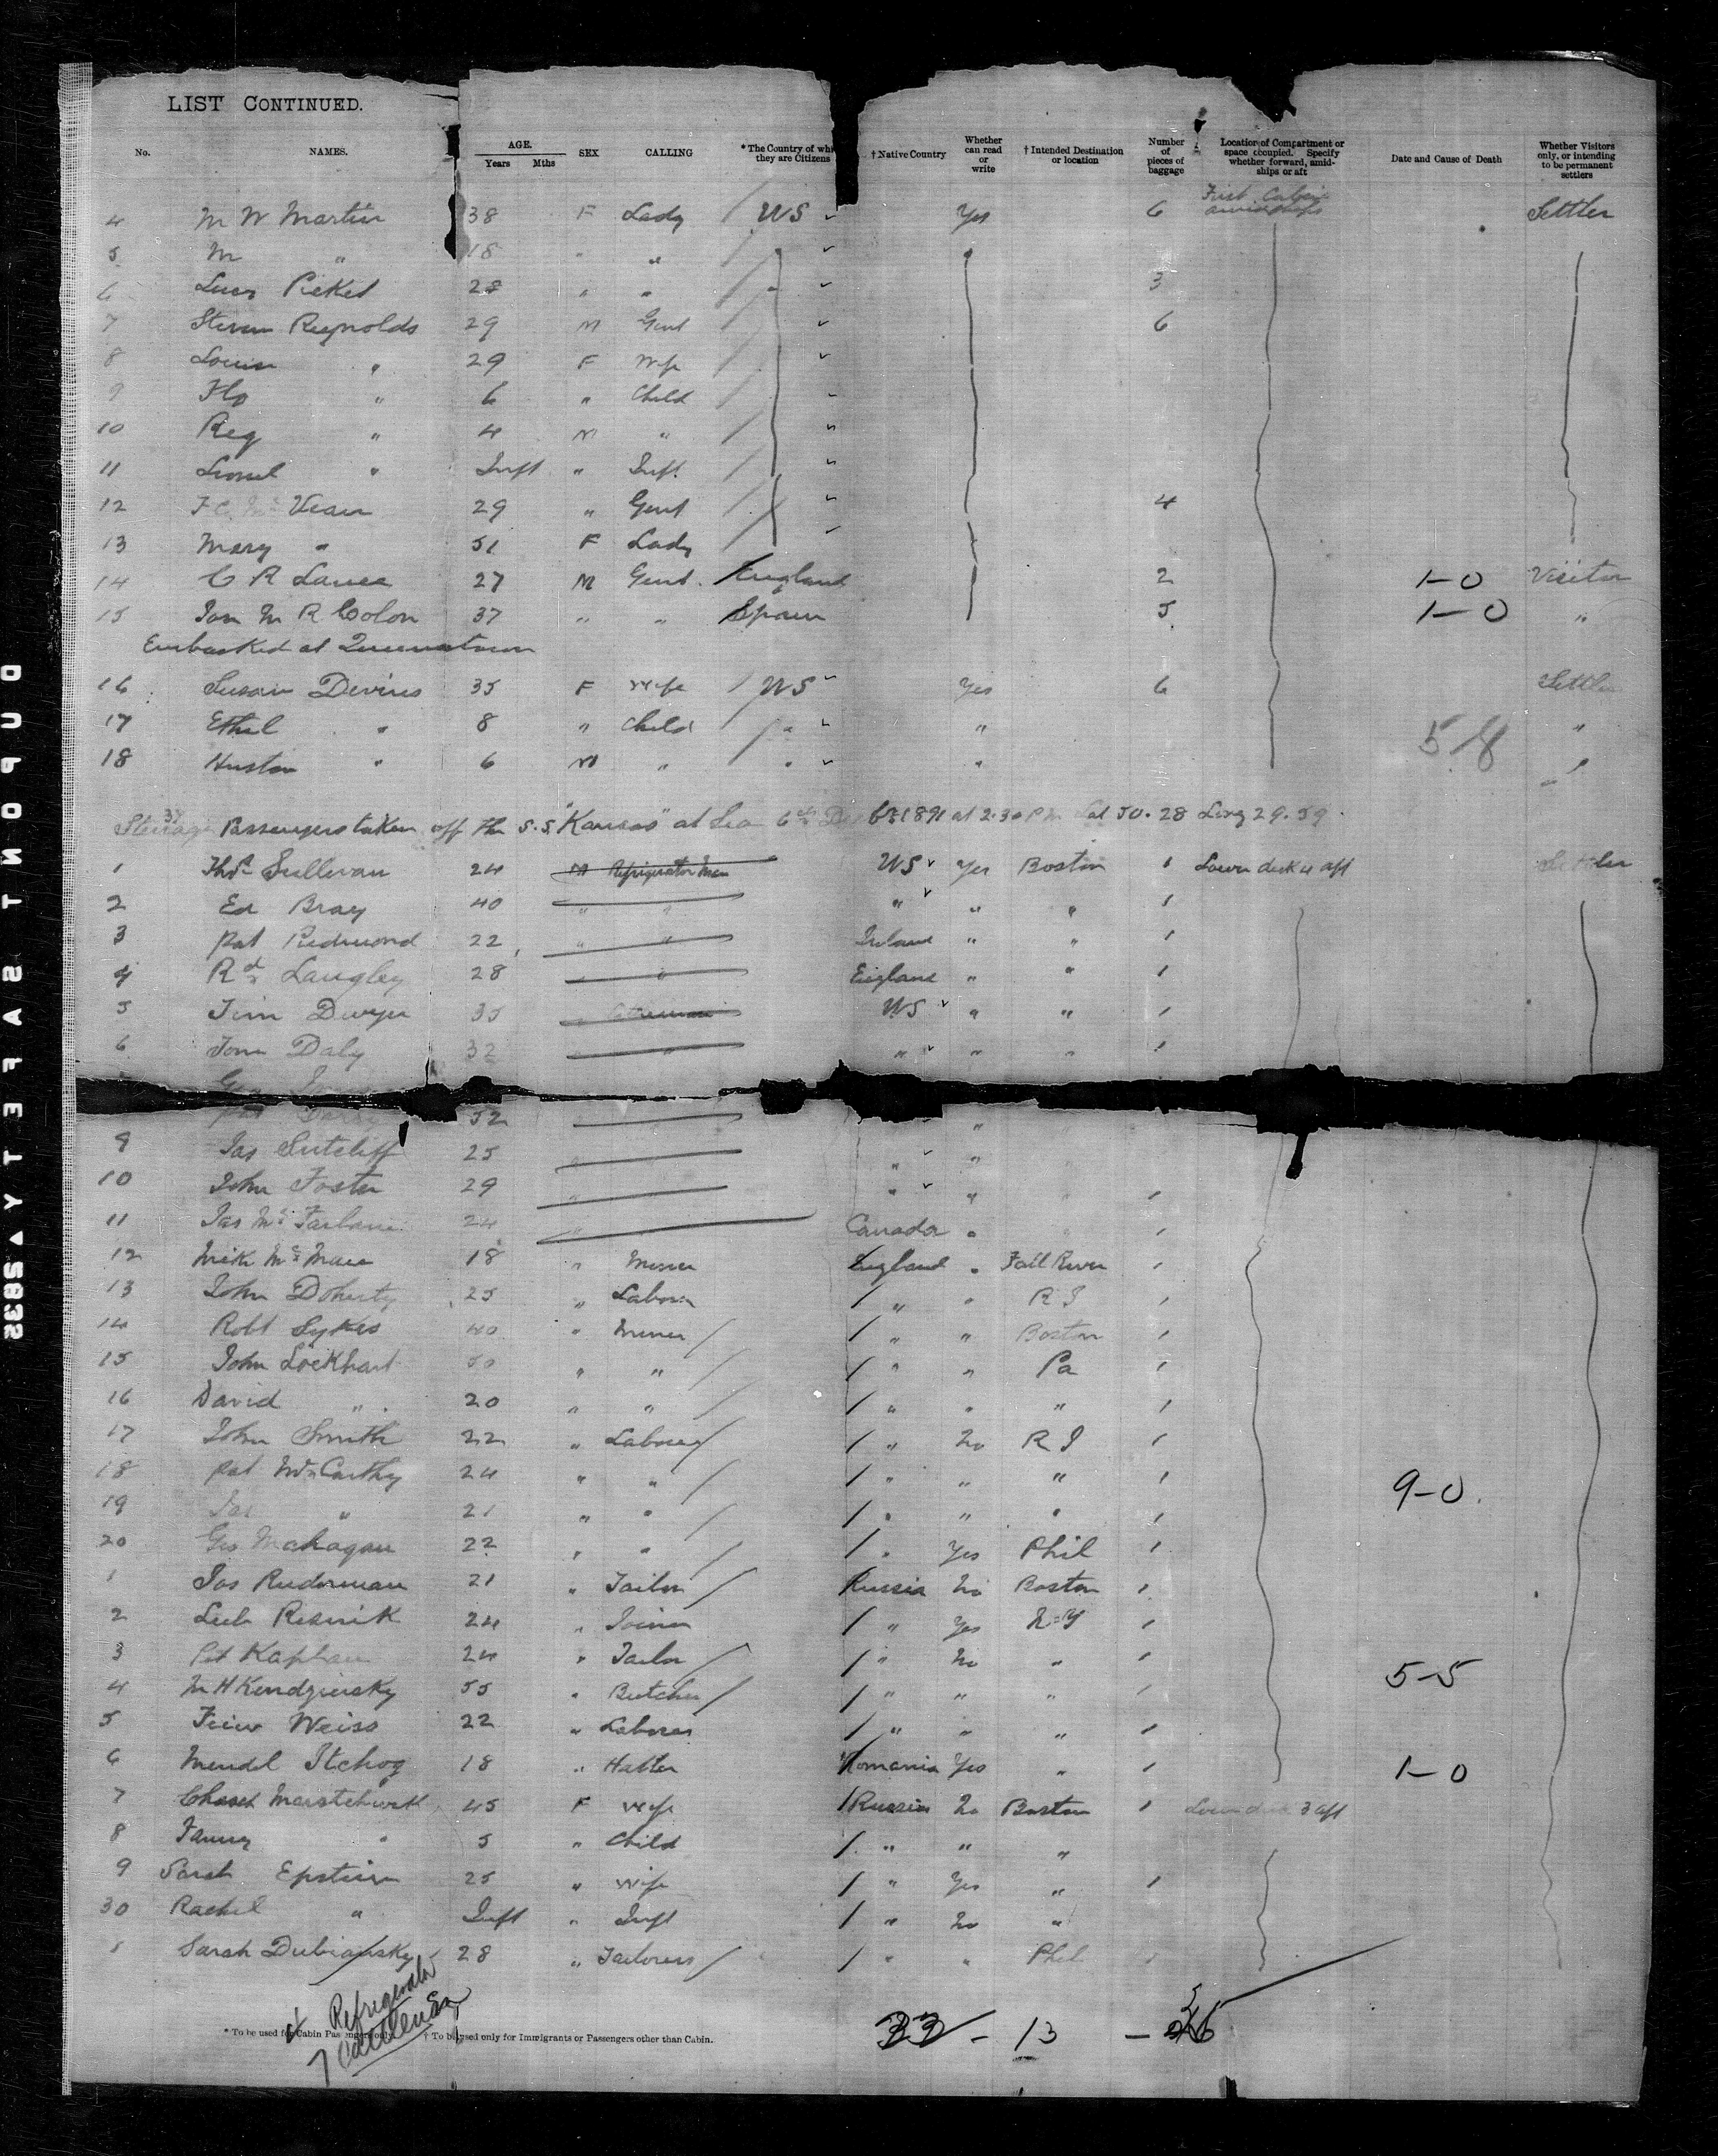 LIST CONTINUED.
No. NAMES. AGE. Years Mths SEX CALLING * The Country of wh they are Citizens † Native Country Whether can read or write † Intended Destination or location Number of pieces of baggage Location of Compartment or space occupied. Specify whether forward, amid-ships or aft Date and Cause of Death Whether Visitors only, or intending to be permanent settlers
4 M W Martin 38 F Lady US Yes 6 First Cabin amidships Settler
5 M " 18 " "
6 Lucy Picket 28 " " 3
7 Steven Reynolds 29 M Gent 6
8 Louisa " 29 F Wife
9 Flo " 6 " Child
10 Reg " 4 M "
11 Lionel " Inft " Inft.
12 F C Mc Vean 29 " Gent 4
13 Mary " 51 F Lady
14 C R Lance 27 M Gent. England 2 1-0 Visitor
15 M R Colon 37 " " Spain 5 1-0 "
Embarked at Queenstown
16 Susan Devins 35 F Wife US Yes 6 Settler
17 Ethel " 8 " Child " " "
18 Huston " 6 M " " " 5/8 "
Steerage Passengers taken off the S.S. "Kansas" at Sea 6th 1891 at 2.30 P.M. Lat 50.28 Long 29.59.
1 Thos Sullivan 24 M Refrigerator Men US Yes Boston 1 Lower deck 4 aft Settler
2 Ed Bray 40 " " " " " 1
3 Pat Redmond 22 " " Ireland " " 1
4 Rd Langley 28 " " England " " 1
5 Tim Dwyer 35 " Cattleman US " " 1
6 Tom Daly 32 " " " " " 1
Geo
Pat 52 "
9 Jas Sutcliff 25 " " "
10 John Foster 29 " " " 1
11 Jas Mc Farlane 24 " Canada " 1
12 Mick Mc 18 " Miner England " Fall River 1
13 John Doherty 25 " Laborer " " R I 1
14 Robt Sykes 40 " Miner " " Boston 1
15 John Lockhart 50 " " " " Pa 1
16 David " 20 " " " " " 1
17 John Smith 22 " Laborer " No R I 1
18 Pat McCarthy 24 " " " " " 1 9-0.
19 Jas " 21 " " " " " 1
20 Geo Mahagan 22 " " " Yes Phil 1
1 Jos Ruderman 21 " Tailor Russia No Boston 1
2 Leib Resnik 24 " Joiner " Yes N-Y 1
3 Kaplan 24 " Tailor " No " 1
4 M H Kendziersky 55 " Butcher " " " 1 5-5
5 Weiss 22 " Laborer " " " 1
6 Mendel Itchog 18 " Hatter Romania Yes " 1 1-0
7 45 F Wife Russia No Boston 1 Lower deck 3 aft
8 Fanny " 5 " Child " " "
9 Sarah Epstein 25 " Wife " Yes " 1
30 Rachel " Inft " Inft " No "
1 Sarah Dubiansky 28 " Tailoress " " Phil
4 Refrigerator
7 Cattlemen
* To be used for Cabin Passengers only. † To be used only for Immigrants or Passengers other than Cabin.
- 13 -
DUPONT SAFETY ▲ 5852